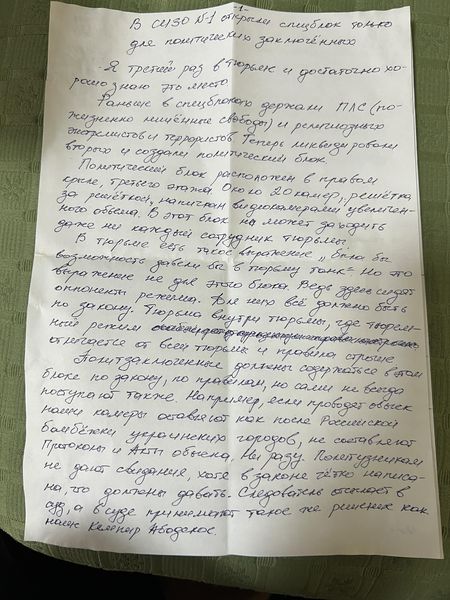 -1-
В СИЗО №1 открыли спецблок только
для политических заключённых
- Я третий раз в тюрьме и достаточно хо-
рошо знаю это место.
Раньше в спецблоках держали ПЛС (по-
жизненно лишённые свободы) и религиозных
экстремистов и террористов. Теперь ликвидировали
вторых и создали политический блок.
Политический блок расположен в правом
крыле, третьего этажа. Около 20 камер, решётка
за решёткой, напичкан видеокамерами увеличен-
ного объема. В этот блок не может заходить
даже не каждый сотрудник тюрьмы.
В тюрьме есть такое выражение „была бы
возможность завели бы в тюрьму танк" Но это
выражение не для этого блока. Ведь здесь сидят
оппоненты режима. Для них всё должно быть
по закону. Тюрьма внутри тюрьмы, где тюрем-
ный режим
отличается от всей тюрьмы и правила строже
Политзаключенные должны содержаться в этом
блоке по закону, по правилам, но сами не всегда
поступают также. Например, если проводят обыск
наши камеры оставляют как после Российской
бомбёжки украинских городов, не составляют
Протоколы и Акты обыска. Ни разу. Политузникам
не дают свидания, хотя в законе чётко написа-
на, что должны давать. Следователь отсылает в
суд, а в суде принимают такое же решение как
наше Келенер Абодское.